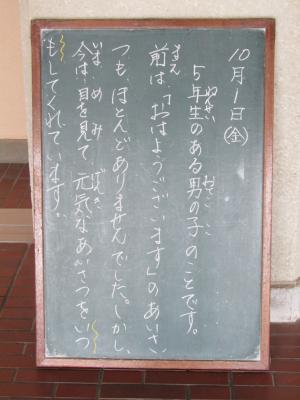 10月1日(金)
5年生のある男の子のことです。
前は、「おはようございます」のあいさ
つも、ほとんどありませんでした。しかし、
今は、目を見て、元気なあいさつをいつ
もしてくれています。